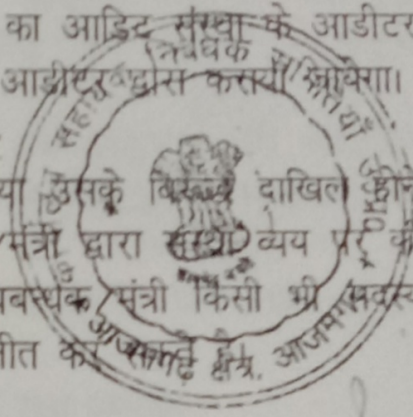 का आडिट संस्था के आडीटर
आडीटर द्वारा कराया जायेगा।
या उसके विरूद्ध दाखिल होने
मंत्री द्वारा संस्था व्यय पर क
प्रबन्धक/मंत्री किसी भी सदस्
नीत कर सकते है।
आजमगढ़ क्षेत्र, आजमगढ़